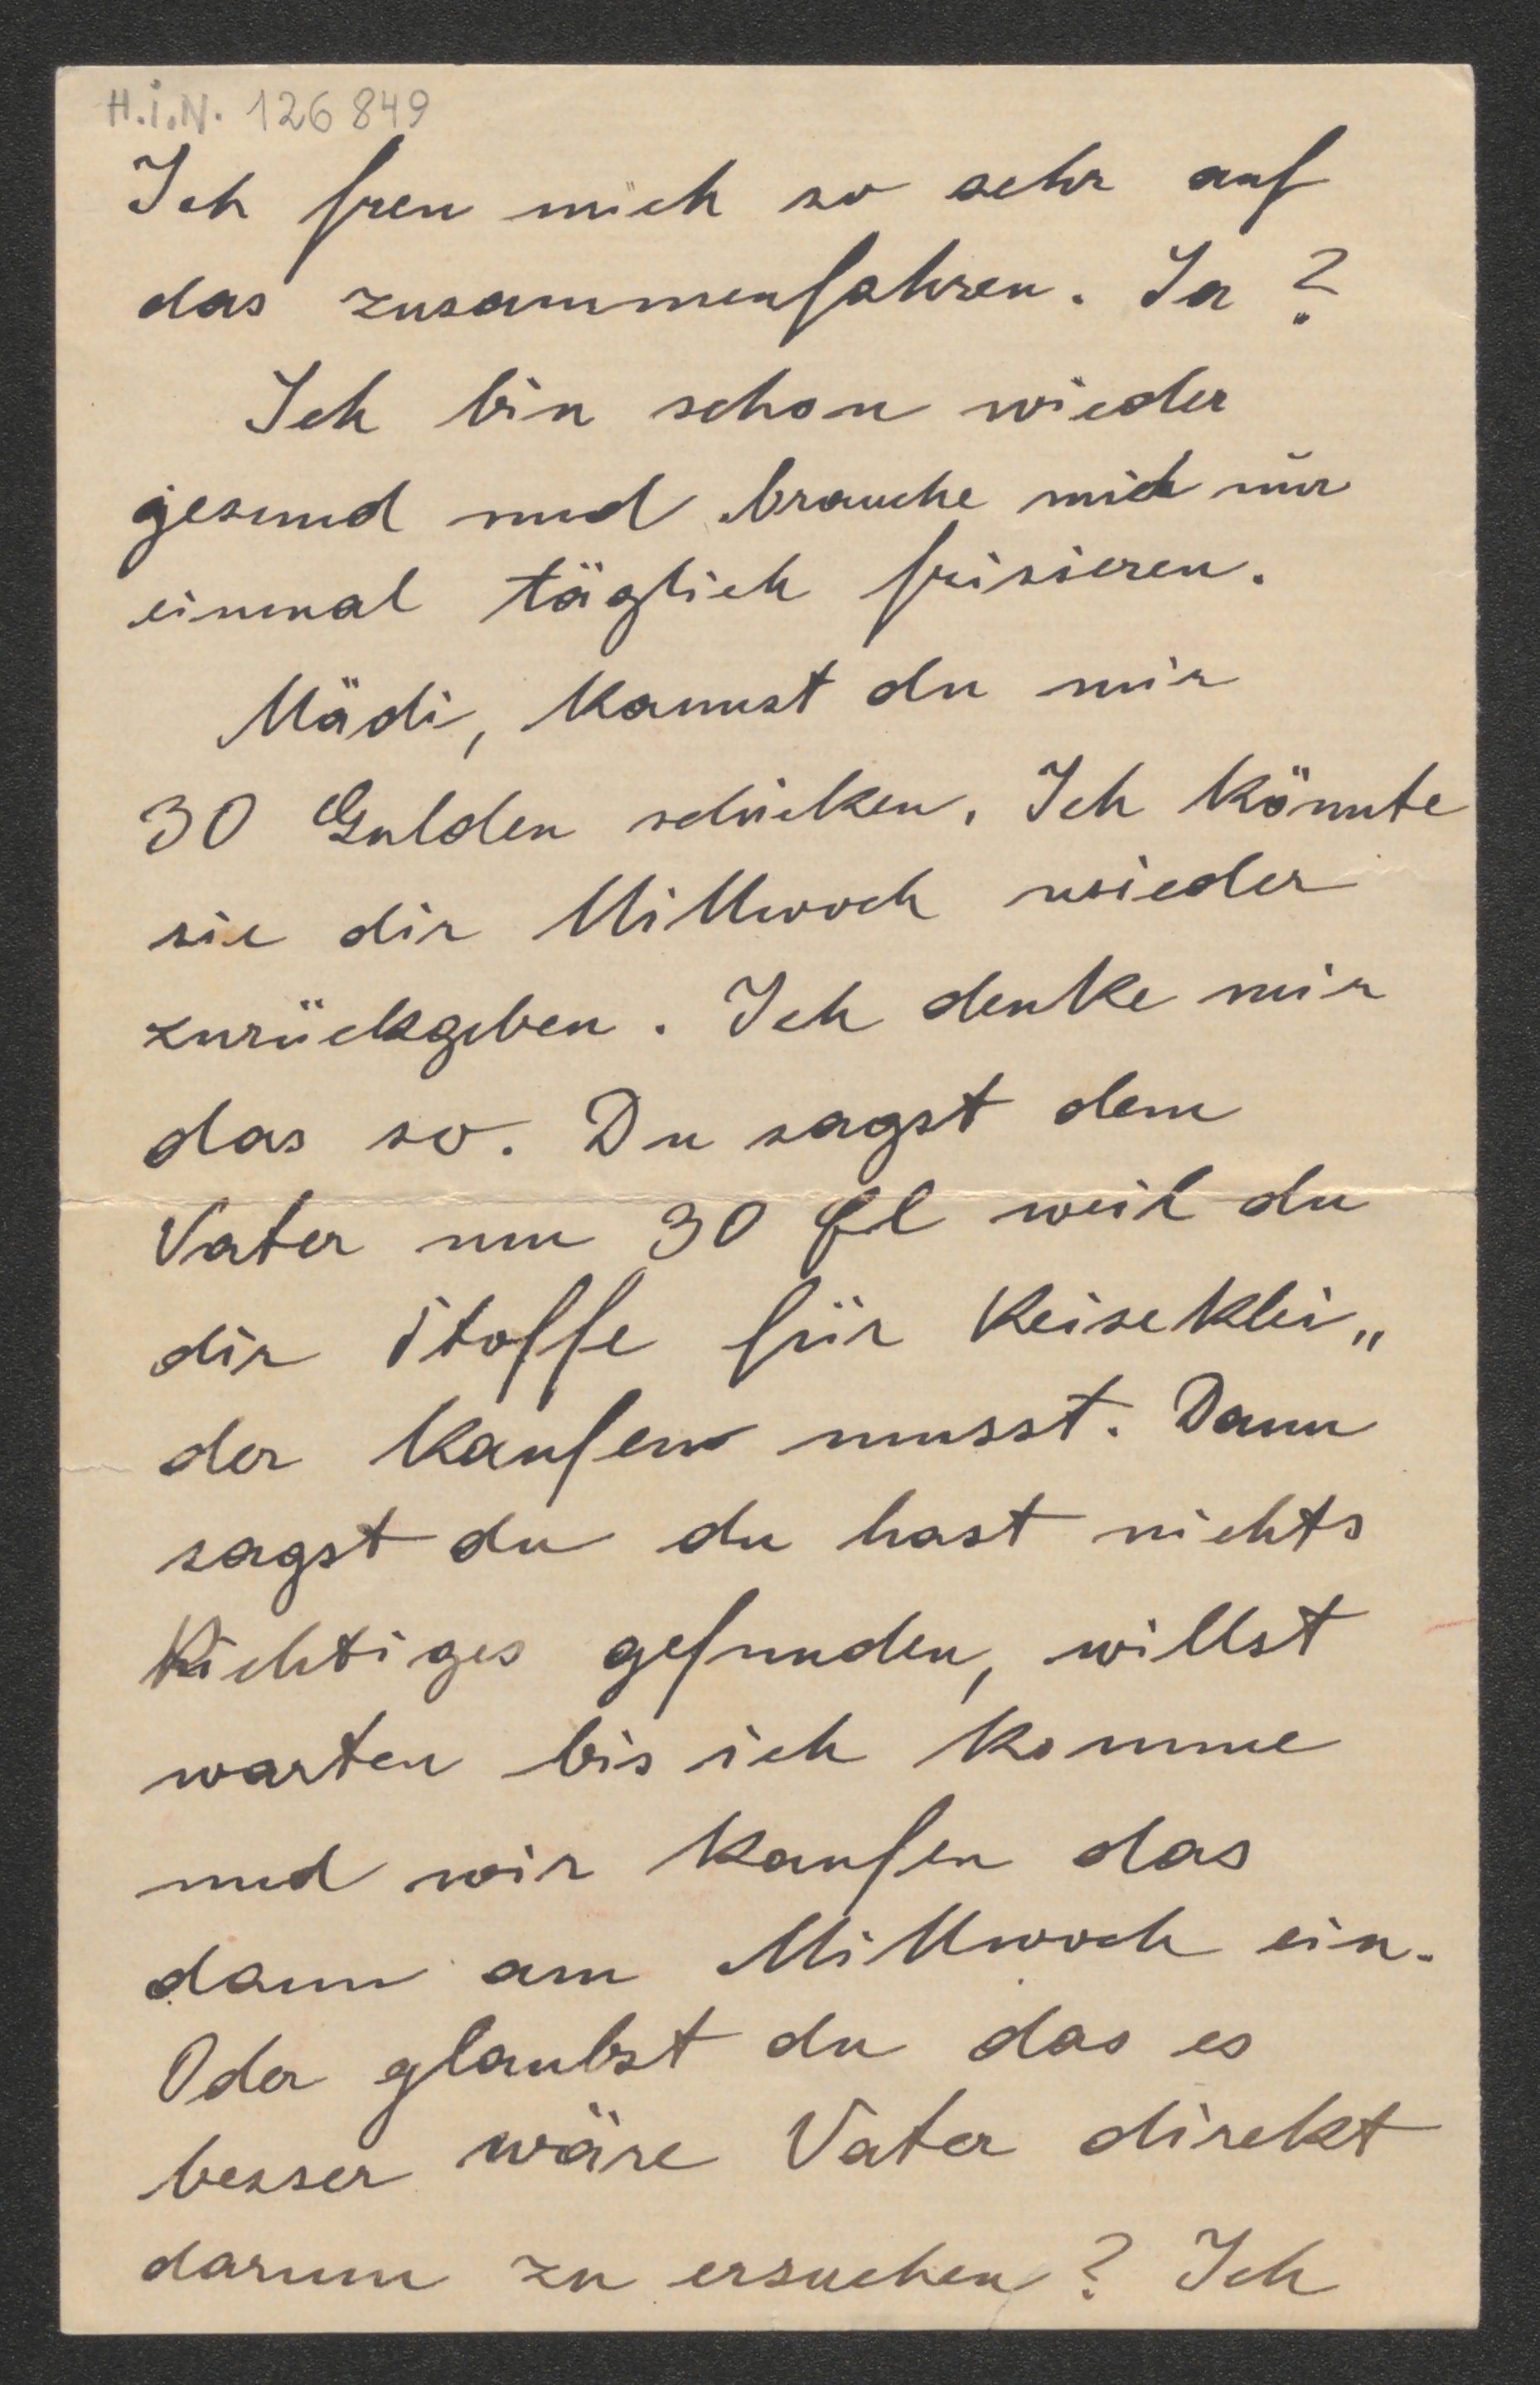 H.I.N. 126849
Ich freu mich so sehr auf
das zusammenfahren. Ja?
Ich bin schon wieder
gesund und brauche mich nur
einmal täglich frisieren.
Mädi, kannst du mir
30 Gulden schicken. Ich könnte
sie dir Mittwoch wieder
zurückgeben. Ich denke mir
das so. Du sagst dem
Vater um 30 fl weil du
dir Stoffe für Reiseklei„
der kaufen musst. Dann
sagst du du hast nichts
Richtiges gefunden, willst
warten bis ich komme
und wir kaufen das
dann am Mittwoch ein.
Oder glaubst du das es
besser wäre Vater direkt
darum zu ersuchen? Ich